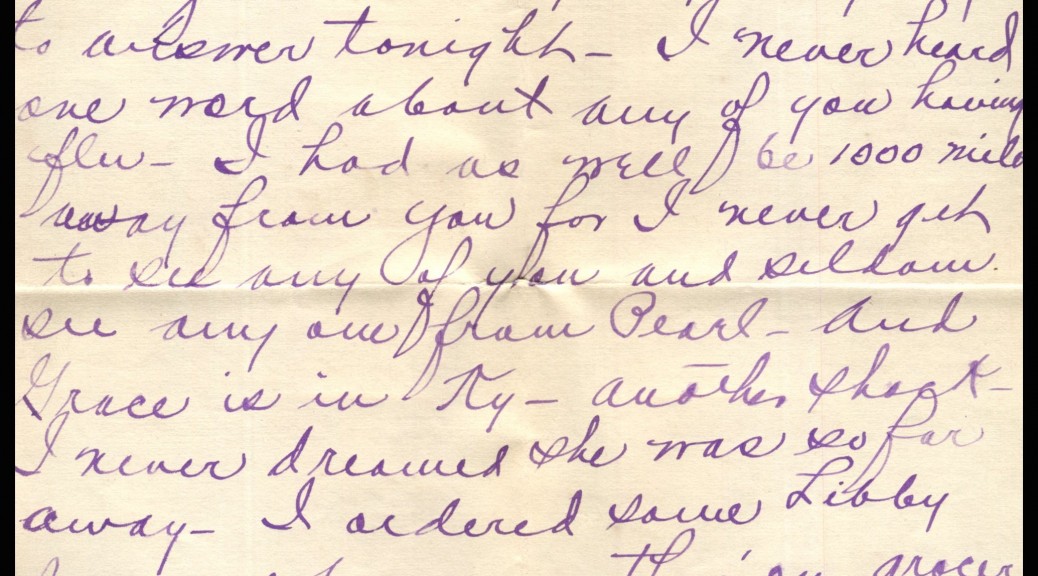 to answer tonight - I never heard
one word about any of you having
flu - I had as well be 1000 mile
away from you for I never get
to see any of you and seldom
see any one from Pearl - And
Grace is in Ky - another shock -
I never dreamed she was so far
away - I ordered some Libby